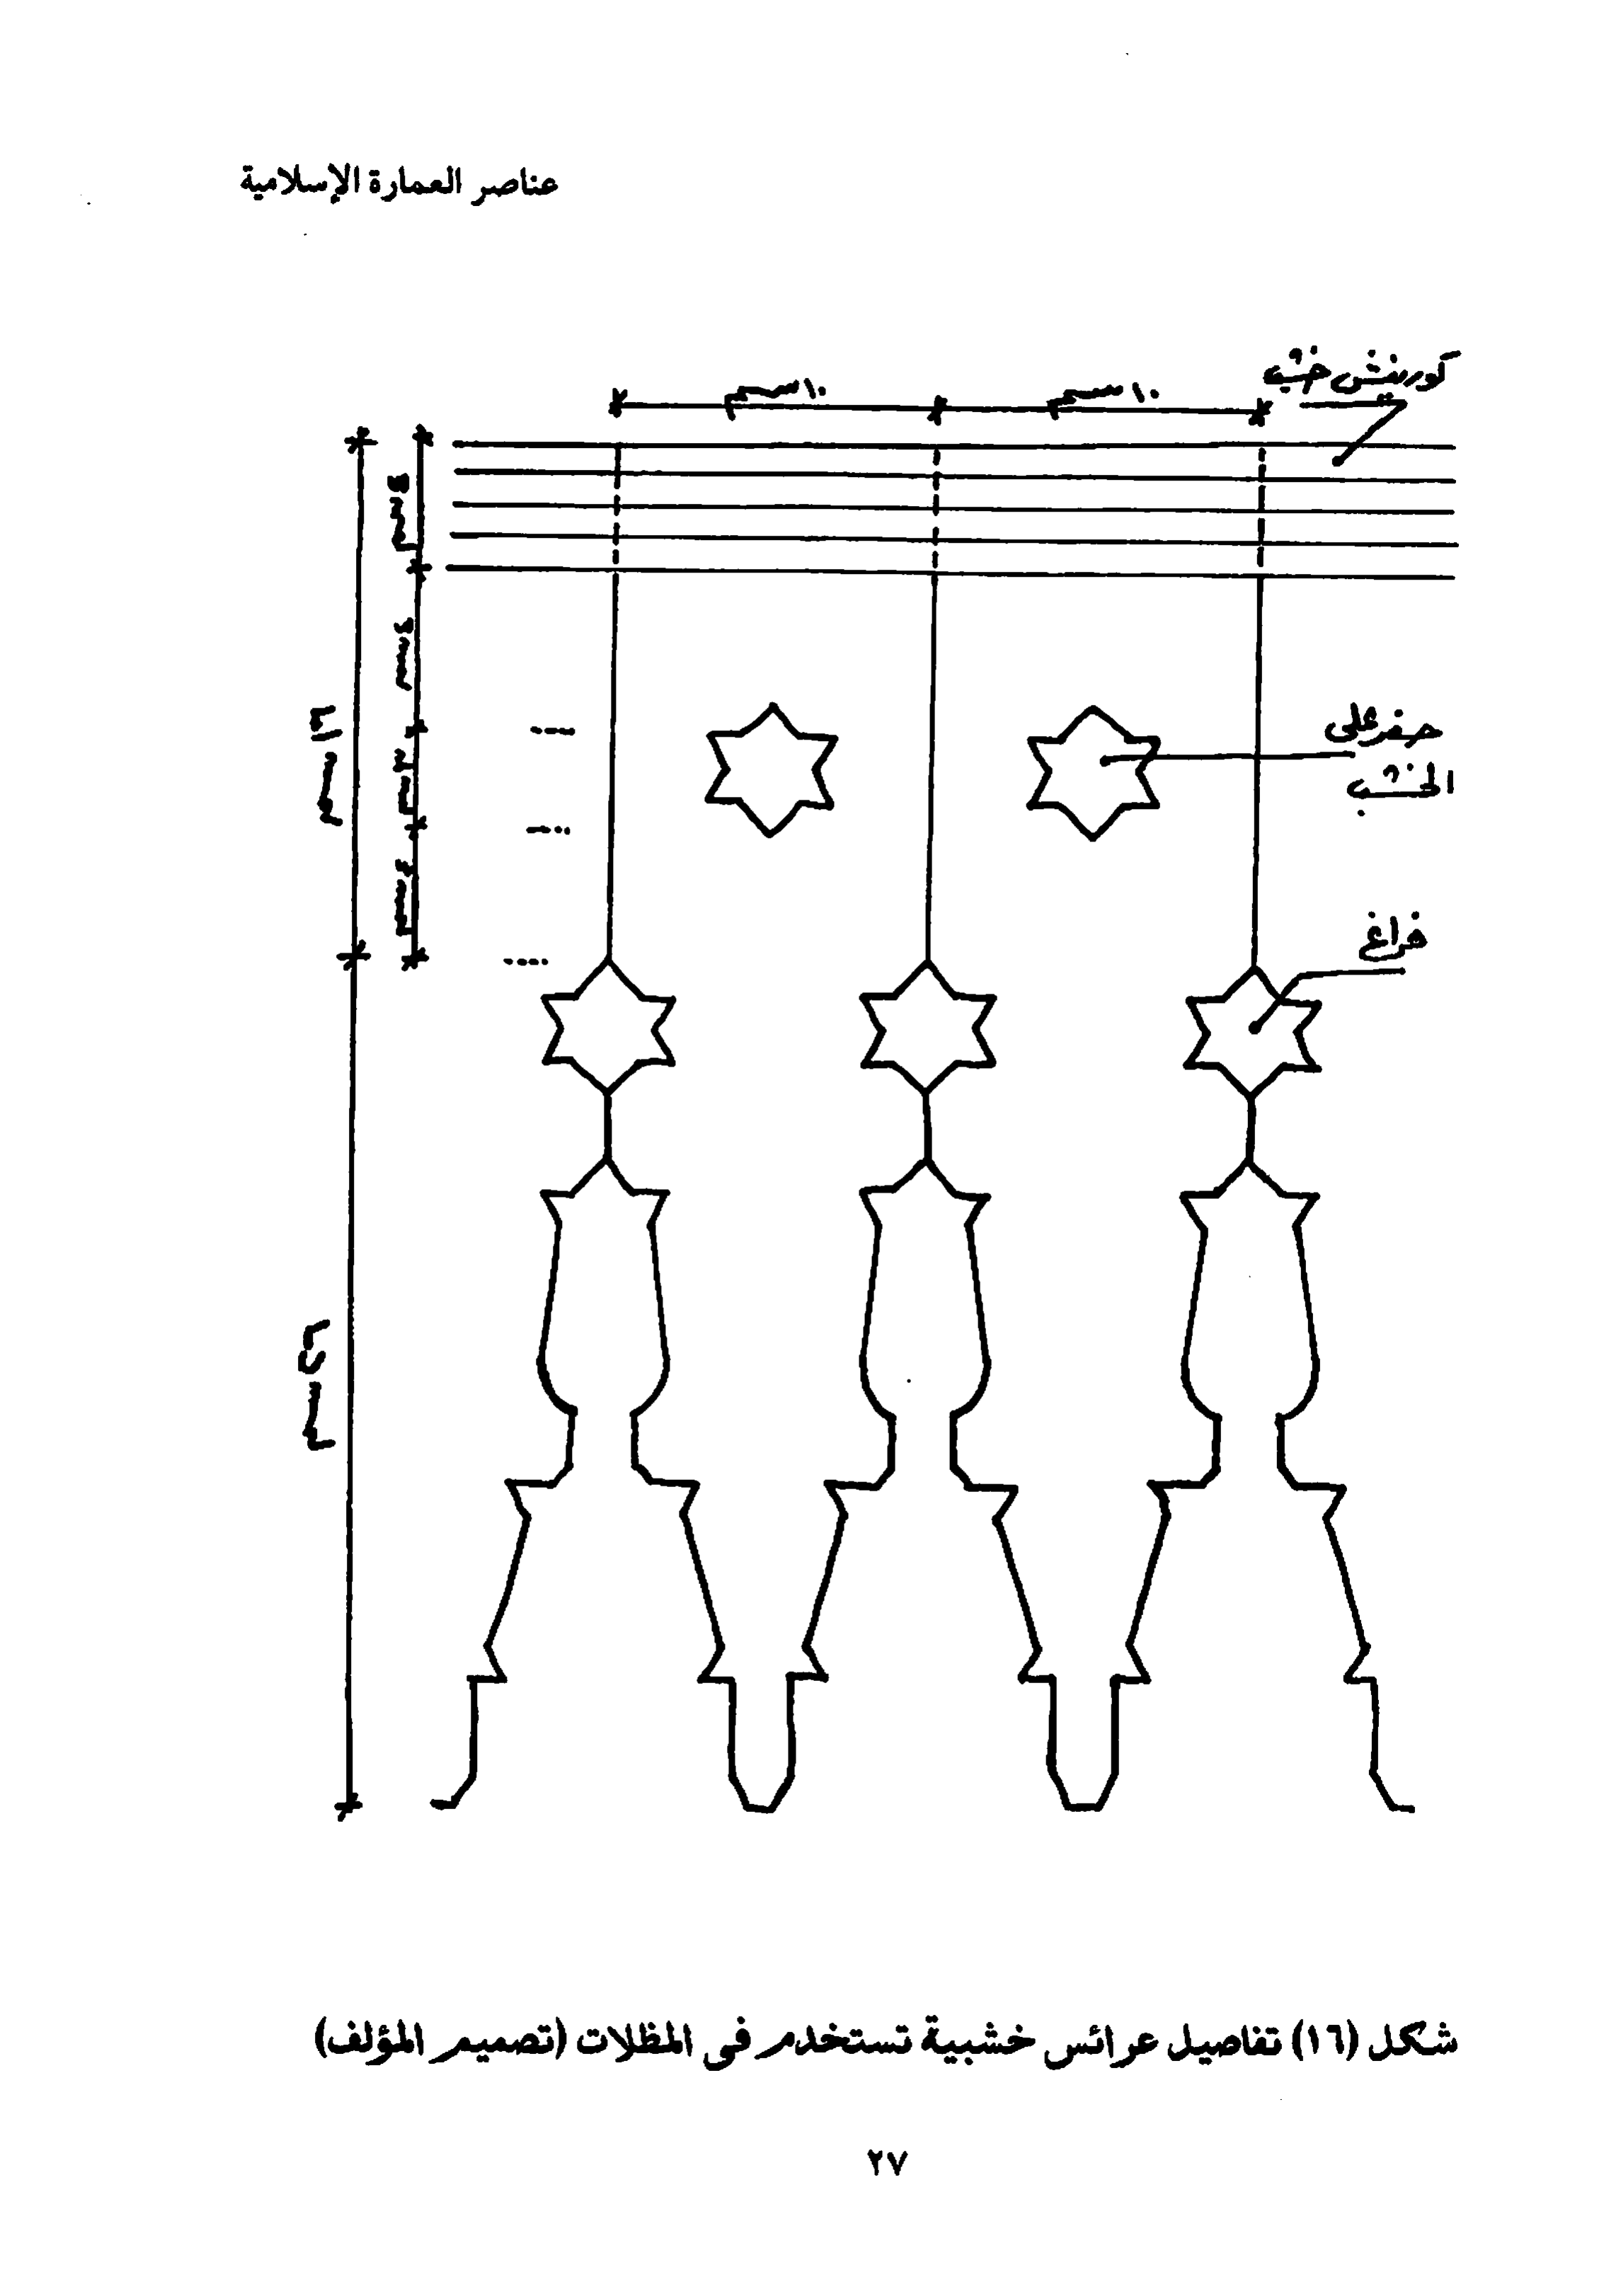 عناصر العمارة الإسلامية
كورنيش خشب
١٠ سم
١٠ سم
٤ سم
٤ سم
٣ سم
٤ سم
حفر على
الخشب
فراغ
شكل (١٦) تفاصيل عرائس خشبية تستخدم في المظلات (تصميم المؤلف)
٢٧